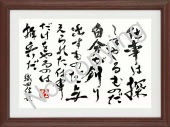 仕事は探
してくるものだ
自分が創り
出すものだ与
えられた仕事
だけをやるのは
雑兵だ
織田信長